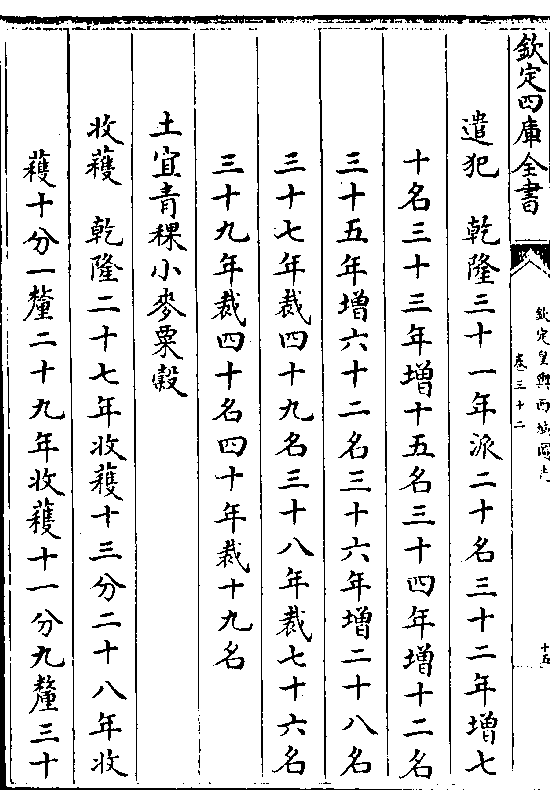 欽定四庫全書
欽定皇輿西域圖志
卷三十二
十五
遣犯　乾隆三十一年派二十名三十二年增七
十名三十三年增十五名三十四年增十二名
三十五年增六十二名三十六年增二十八名
三十七年裁四十九名三十八年裁七十六名
三十九年裁四十名四十年裁十九名
土宜青稞小麥粟穀
收蓷　乾隆二十七年收蓷十三分二十八年收
蓷十分一釐二十九年收蓷十一分九釐三十